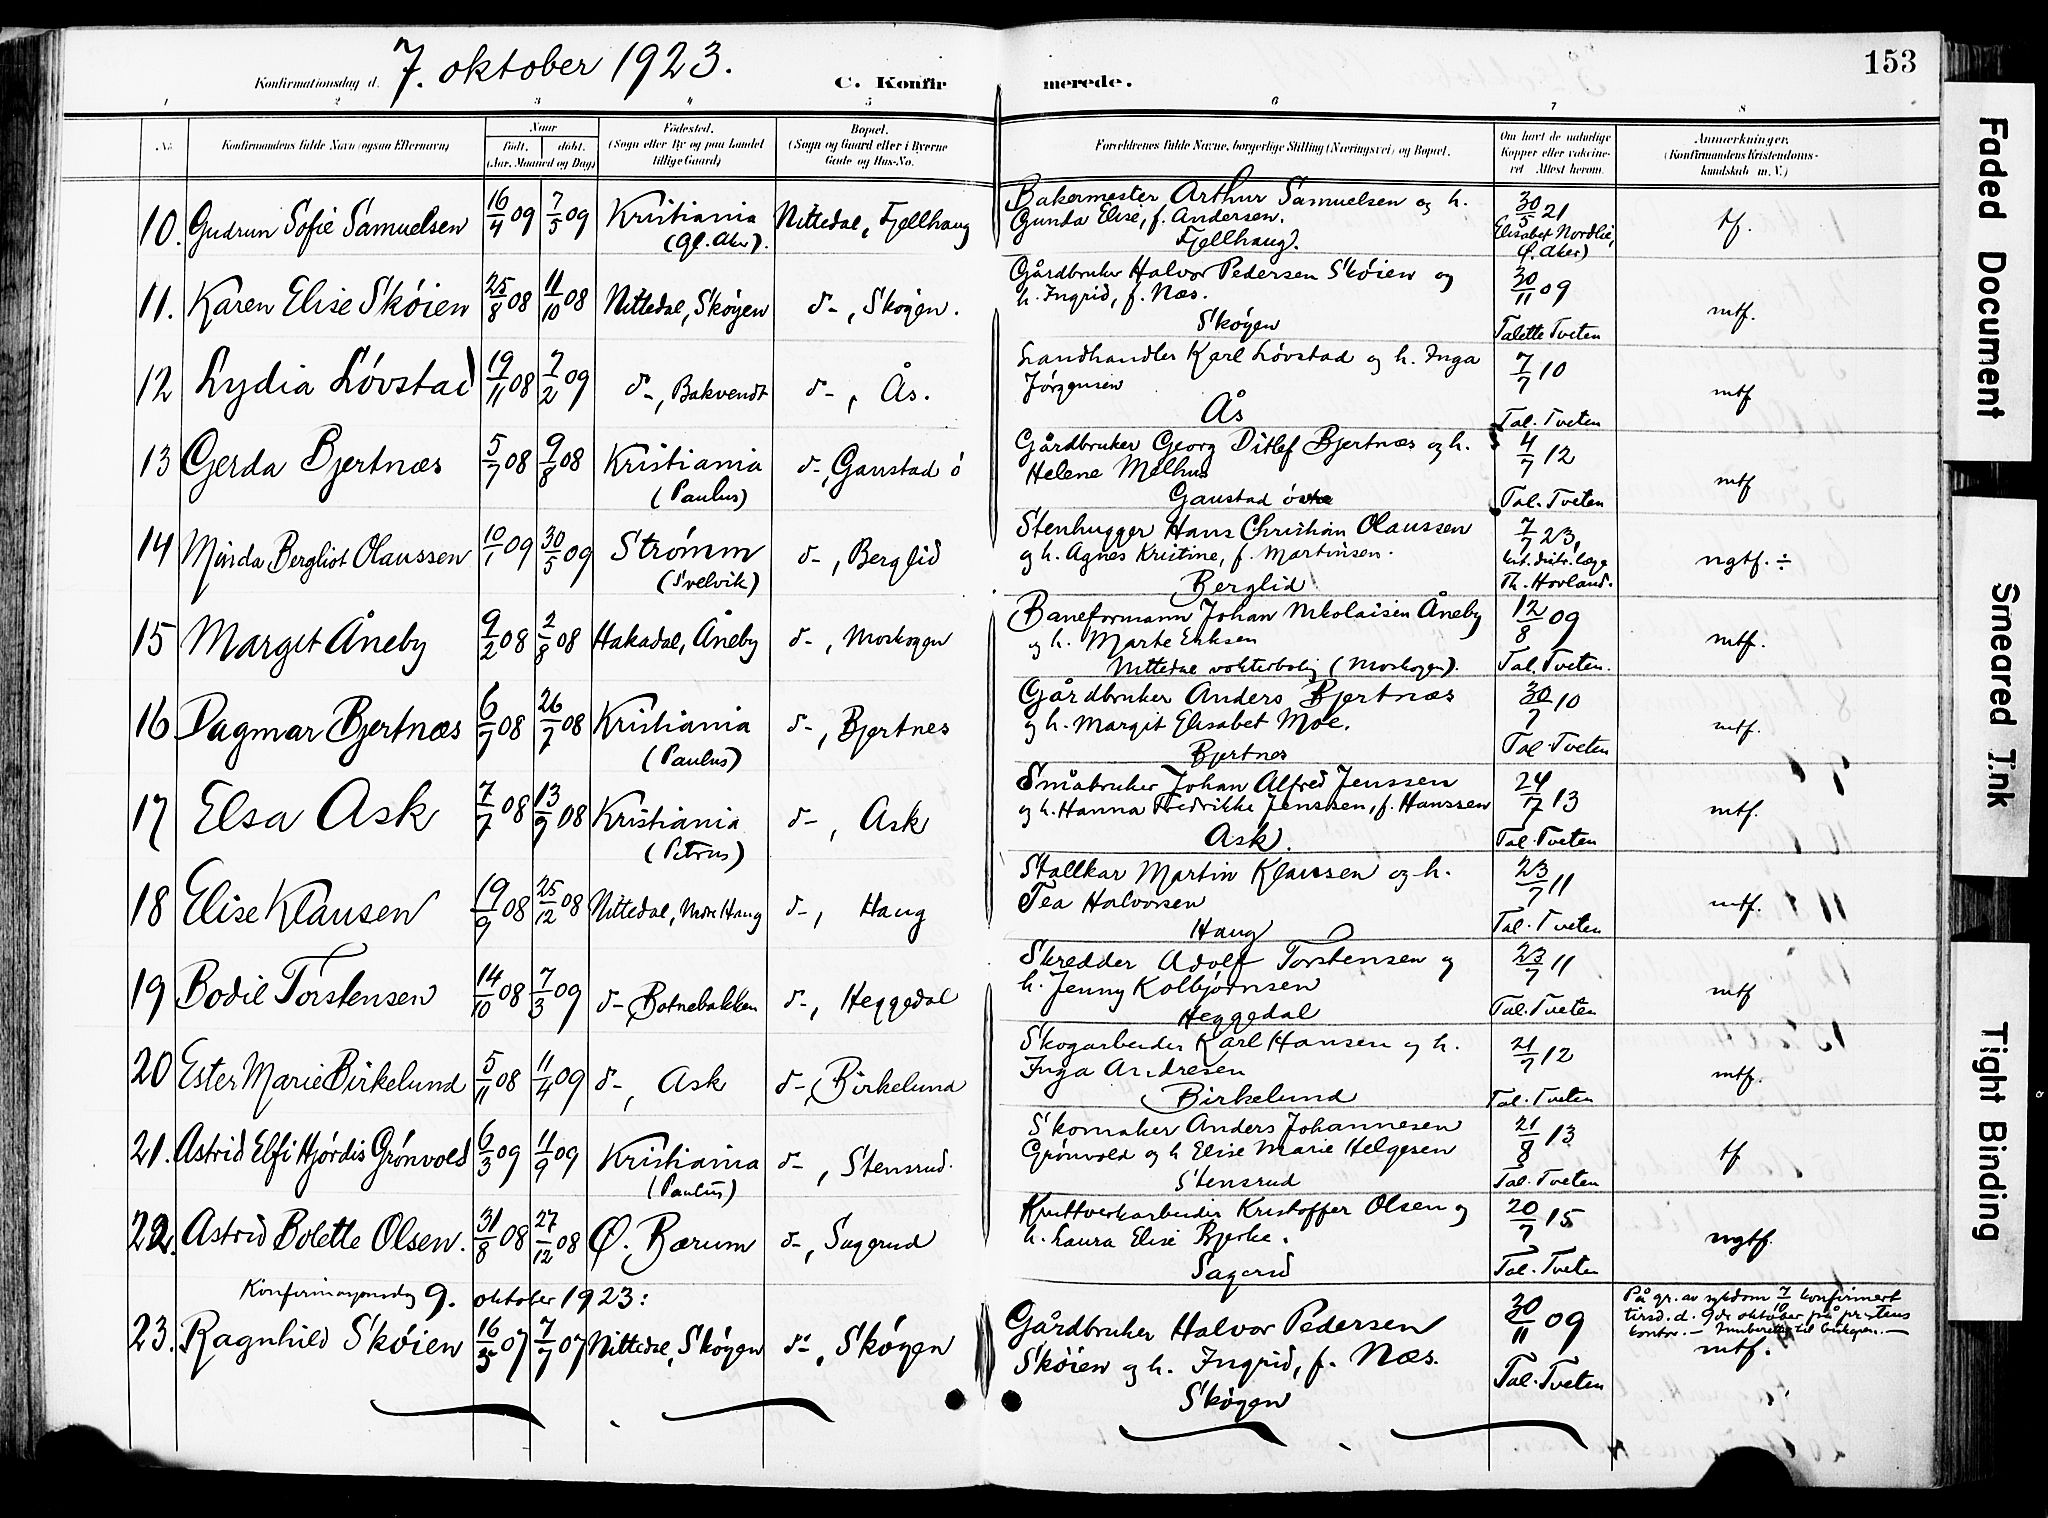 Konfirmationsdag d. 7. oktober 1923.
C. Konfirmerede.
153
1 2 3 4 5 6 7 8
No.
Konfirmandens fulde Navn (ogsaa Efternavn)
Naar
født. døbt.
(Aar, Maaned og Dag)
Fødested.
(Sogn eller By og paa Landet
tillige Gaard)
Bopæl.
(Sogn og Gaard eller i Byerne
Gade og Hus-No.
Forældrenes fulde Navne, borgerlige Stilling (Næringsvei) og Bopæl.
Om havt de naturlige
Kopper eller vaccine-
ret Attest herom.
Anmærkninger.
(Konfirmandens Kristendoms-
kundskab m. V.)
10. Gudrun Sofie Samuelsen 16/4 09 7/5 09 Kristiania (Gl. Aker). Nittedal, Fjellhaug
Bakermester Arthur Samuelsen og h.
Gunda Elise, f. Andersen.
Fjellhaug.
30/5 21
Elisabet Nordlie,
(V. Aker)
tf.
11. Karen Elise Skøien 25/8 08 11/10 08 Nittedal, Skøyen d-, Skøyen.
Gårdbruker Halvor Pedersen Skøien og
h. Ingrid, f. Næs.
Skøyen
30/11 09
Talette Tveten
mtf.
12 Lydia Løvstad 19/11 08 7/2 09 d-, Bakvendt d-, Ås.
Landhandler Karl Løvstad og h. Inga
Jørgensen
Ås
7/7 10
Tal. Tveten
mtf
13 Gerda Bjertnæs 5/7 08 9/8 08 Kristiania (Paulus) d-, Gaustad ø
Gårdbruker Georg Ditlef Bjertnæs og h.
Helene Melhus
Gaustad østre
4/7 12
Tal. Tveten
mtf
14 Minda Bergliot Olaussen 10/1 09 30/5 09 Strømm (Svelvik) d-, Berglid
Stenhugger Hans Christian Olaussen
og h. Agnes Kristine, f. Martinsen.
Berglid
7/7 23,
distr. læge
Th. Hovland.
ngtf. ÷
15 Margit Åneby 9/2 08 2/8 08 Hakadal, Åneby d-, Moskogen
Baneformann Johan Nikolaisen Åneby
og h. Marte Eriksen
Nittedal vokterbolig (Moskogen).
12/8 09
Tal. Tveten.
mtf.
16 Dagmar Bjertnæs 6/7 08 26/7 08 Kristiania (Paulus) d-, Bjertnes
Gårdbruker Anders Bjertnæs
og h. Margit Elisabet Moe.
Bjertnes
30/7 10
Tal. Tveten
mtf.
17 Elsa Ask 7/7 08 13/9 08 Kristiania (Petrus) d-, Ask
Småbruker Johan Alfred Jenssen
og h. Hanna Fredrikke Jenssen, f. Hanssen
Ask.
24/7 13
Tal. Tveten
mtf.
18 Elise Klausen 19/9 08 25/12 08 Nittedal, Nore Haug d-, Haug
Stallkar Martin Klaussen og h.
Tea Halvorsen
Haug
23/7 11
Tal. Tveten
mtf.
19 Bodil Torstensen 14/10 08 7/3 09 d-, Botnebakken d-, Heggedal
Skredder Adolf Torstensen og
h. Jenny Kolbjørnsen
Heggedal
23/7 11
Tal. Tveten
mtf
20 Ester Marie Birkelund 5/11 08 11/4 09 d-, Ask d-, Birkelund
Skogarbeider Karl Hansen og h.
Inga Andresen
Birkelund
21/7 12
Tal. Tveten
mtf.
21. Astrid Elfi Hjørdis Grønvold 6/3 09 11/9 09 Kristiania (Paulus) d-, Stensrud.
Skomaker Anders Johannesen
Grønvold og h Elise Marie Helgesen
Stensrud
21/8 13
Tal. Tveten
tf
22. Astrid Bolette Olsen. 31/8 08 27/12 08 Ø. Bærum d-, Sagerud
Kruttverkarbeider Kristoffer Olsen og
h. Laura Elise Bjerke.
Sagerud
20/7 15
Tal. Tveten
ngtf.
Konfirmasjonsdag 9. oktober 1923:
23. Ragnhild Skøien 16/5 07 7/7 07 Nittedal, Skøyen d-, Skøyen
Gårdbruker Halvor Pedersen
Skøien og h. Ingrid, f. Næs.
Skøyen
30/11 09
Tal. Tveten
På gr. av sykdom 7/10 konfirmert
tirsd. d. 9de oktober på prestens
kontor. — Innberettet til biskopen. —
mtf.
Faded Document
Smeared Ink
Tight Binding